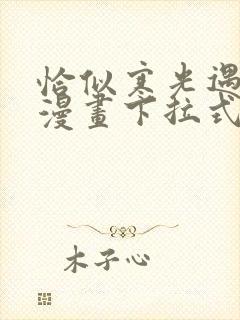 恰似寒光遇
漫畫下拉式
木子心